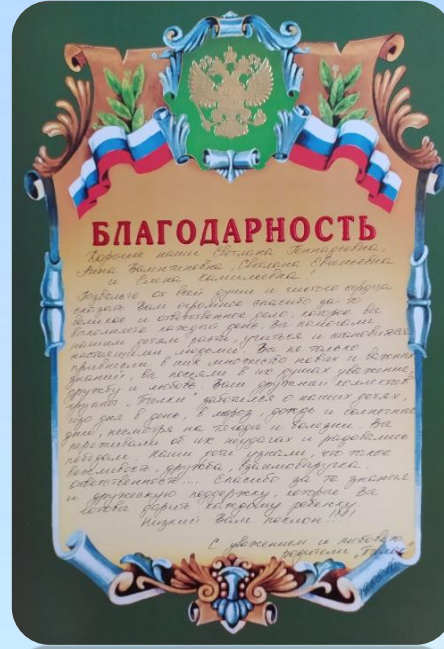 БЛАГОДАРНОСТЬ
Дорогие наши Светлана Геннадьевна,
Анна Валентиновна, Светлана Евгеньевна
и Елена Камильевна!
Позвольте от всей души и чистого сердца
сказать Вам огромное спасибо за то
великое и ответственное дело, которое вы
исполняете каждый день. Вы помогали
нашим детям расти, учиться и становиться
настоящими людьми! Вы не только
привнесли в них множество новых и важных
знаний, вы посеяли в их душах уважение,
дружбу и любовь. Ваш дружный коллектив
группы "Пчелки" заботился о наших детях,
изо дня в день, в мороз, дождь и солнечные
дни, несмотря на погоду и болезни. Вы
переживали от их неудачах и радовались
победам. Наши дети узнали, что такое
вежливость, дружба, взаимовыручка,
ответственность... Спасибо за те знания
и дружескую поддержку, которые Вы
готовы дарить каждому ребенку.
Низкий Вам поклон...!!!
С уважением и любовью,
родители